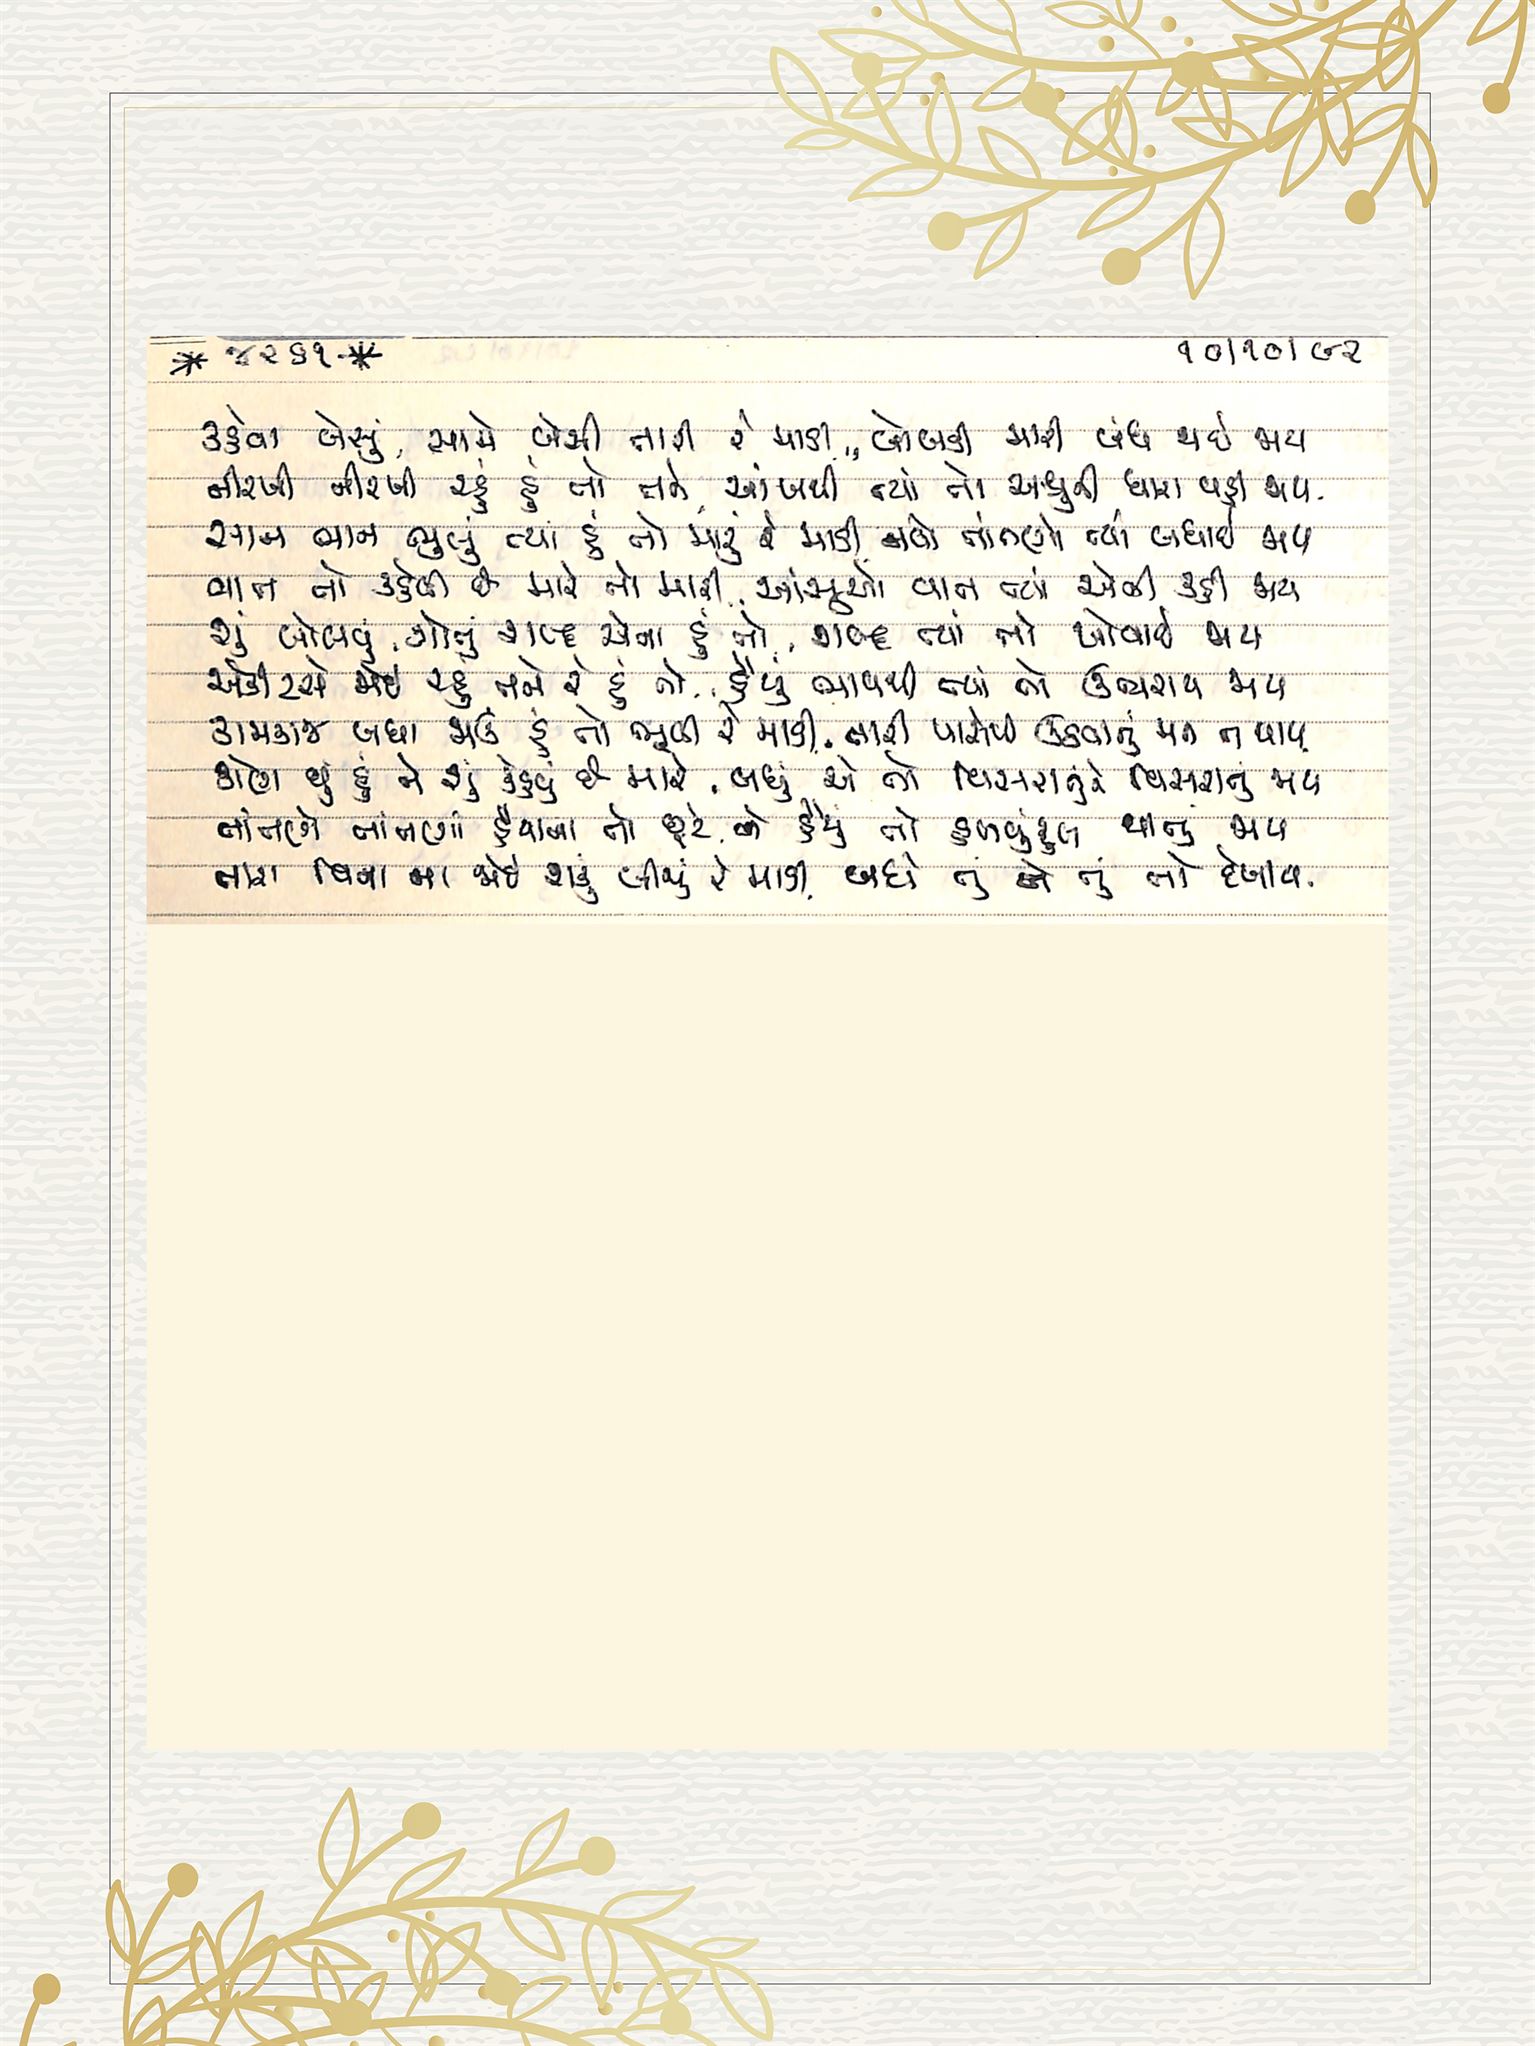 * ૪૨૬૧ * ૧૦/૧૦/૯૨
કહેવા બેસું, સામે બેસી તારી રે માડી,, બોબડી મારી બંધ થઈ જાય
નીરખી નીરખી રહું હું તો તને, આંખથી ત્યાં તો અશ્રુની ધારા વહી જાય.
સાન ભાન ભુલું ત્યાં હું તો મારું રે માડી, તાંતણો ત્યાં બંધાઈ જાય
વાત તો કહેવી છે મારે તો મારી, આંસુઓ વાત ત્યાં એની કહી જાય
શું બોલવું, ગોતું શબ્દ એના હું તો, શબ્દ ત્યાં તો ખોવાઈ જાય
એકીટસે જોઈ રહું તને રે હું તો, હૈયું ભાવથી ત્યાં તો ઉભરાય જાય
કામકાજ બધા જાઉં હું તો ભૂલી રે માડી, તારી પાસેથી ઉઠવાનું મન ન થાય
કોણ છું હું ને શું કહેવું છે મારે, બધું એ તો વિસરાતું રે વિસરાતું જાય
તાંતણે તાંતણાં હૈયાના તો છૂટે, હૈયું તો હળવુંફુલ થાતું જાય
તારા વિના ના જોઈ શકું બીજું રે માડી, બધે તું ને તું તો દેખાય.